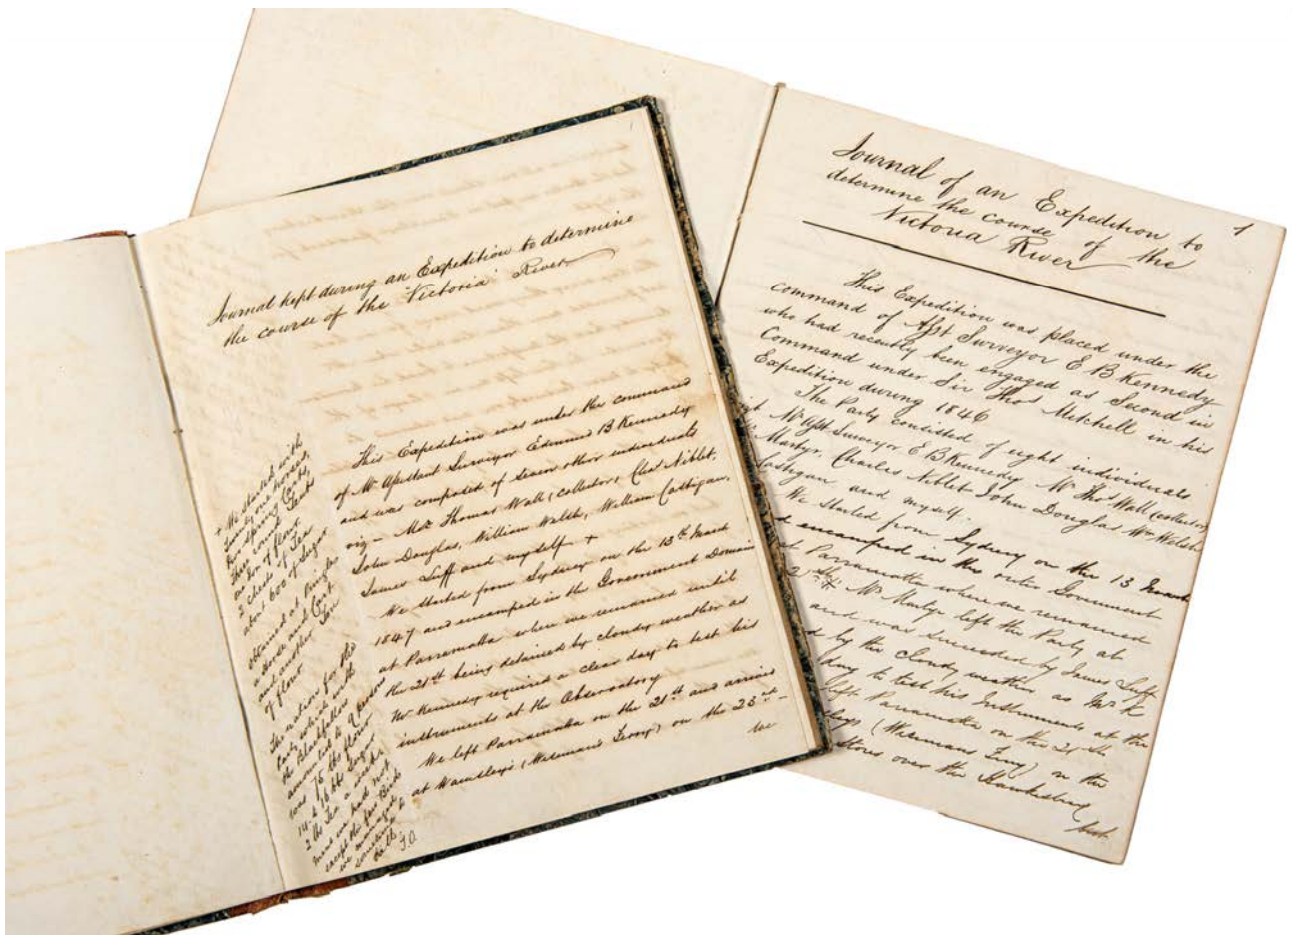 1
Journal kept during an Expedition to determine
the course of the "Victoria" River
This Expedition was under the command
of Mr Assistant Surveyor Edmund B Kennedy
and was composed of seven other individuals
viz - Mrs Thomas Wall, (collector), Chas Niblet.
John Douglas, William Walsh, William Costigan,
James Luff and myself +
We started from Sydney on the 13th March
1847 and encamped in the Government Domain
at Parramatta where we remained until
the 21st being detained by cloudy weather as
Mr Kennedy required a clear day to test his
instruments at the Observatory
We left Parramatta on the 21st and arrived
at Wamsley's (Wisemans Ferry) on the 23rd -
we
+ We started with
twenty one horses,
two spring Carts
three round Tents
one Ton of flour
2 chests of Tea
about 600 of Sugar
obtained at Pringles
a dozen and Cart
and another Ton
of flour
The rations for the
Party which with
the Blackfellows
amounted to 9 persons
was 75 lbs flour
14 lbs Sugar
2 lbs Tea a week
meat we had not
except the few Birds
we managed to
sometimes
J.D.
1
Journal of an Expedition to
determine the course of the
Victoria River
This Expedition was placed under the
command of Asst Surveyor E B Kennedy
who had recently been engaged as Second in
Command under Sir Thos Mitchell in his
Expedition during 1846
The Party consisted of eight individuals
Mr Asst Surveyor E B Kennedy, Mr Thos Wall (collector)
Martyr, Charles Niblet John Douglas Wm Walsh
Costigan and myself.
We started from Sydney on the 13 March
encamped in the outer Government
at Parramatta where we remained
21st Mr Martyr left the Party at
and was succeeded by James Luff
by the cloudy weather as Mr K
day to test his Instruments at the
left Parramatta on the 21st
(Wisemans Ferry) on the
Stores over the Hawkesbury